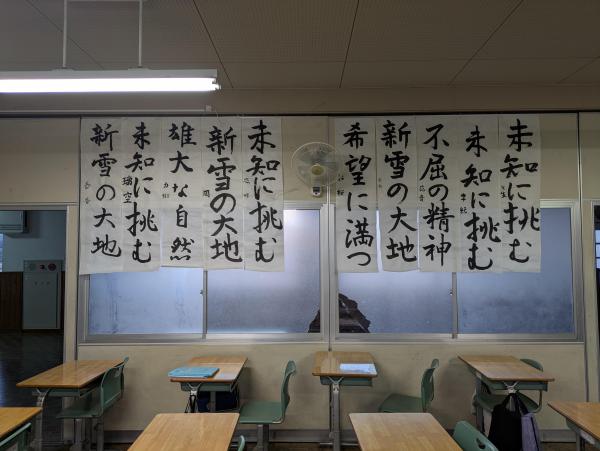 未知に挑む
未知に挑む
不屈の精神
新雪の大地
希望に満つ
未知に挑む
新雪の大地
雄大な自然
未知に挑む
新雪の大地